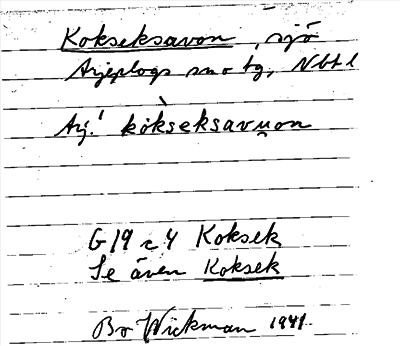 Kokseksavon, sjö
Arjeplogs sn o tg, Nbtl
Arj.! kòkseksavu̯on
G 19 c 4 Koksek
Se även Koksek
Bo Wickman 1941.